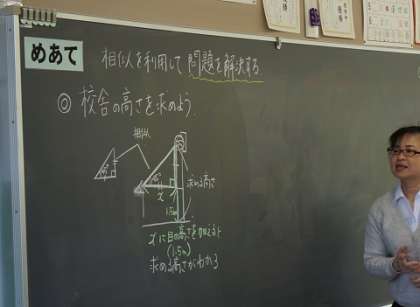 めあて
相似を利用して問題を解決する
◎ 校舎の高さを求めよう
相似
求める高さ
x
1.5m
xに目の高さを加えると
(1.5m)
求める高さがわかる